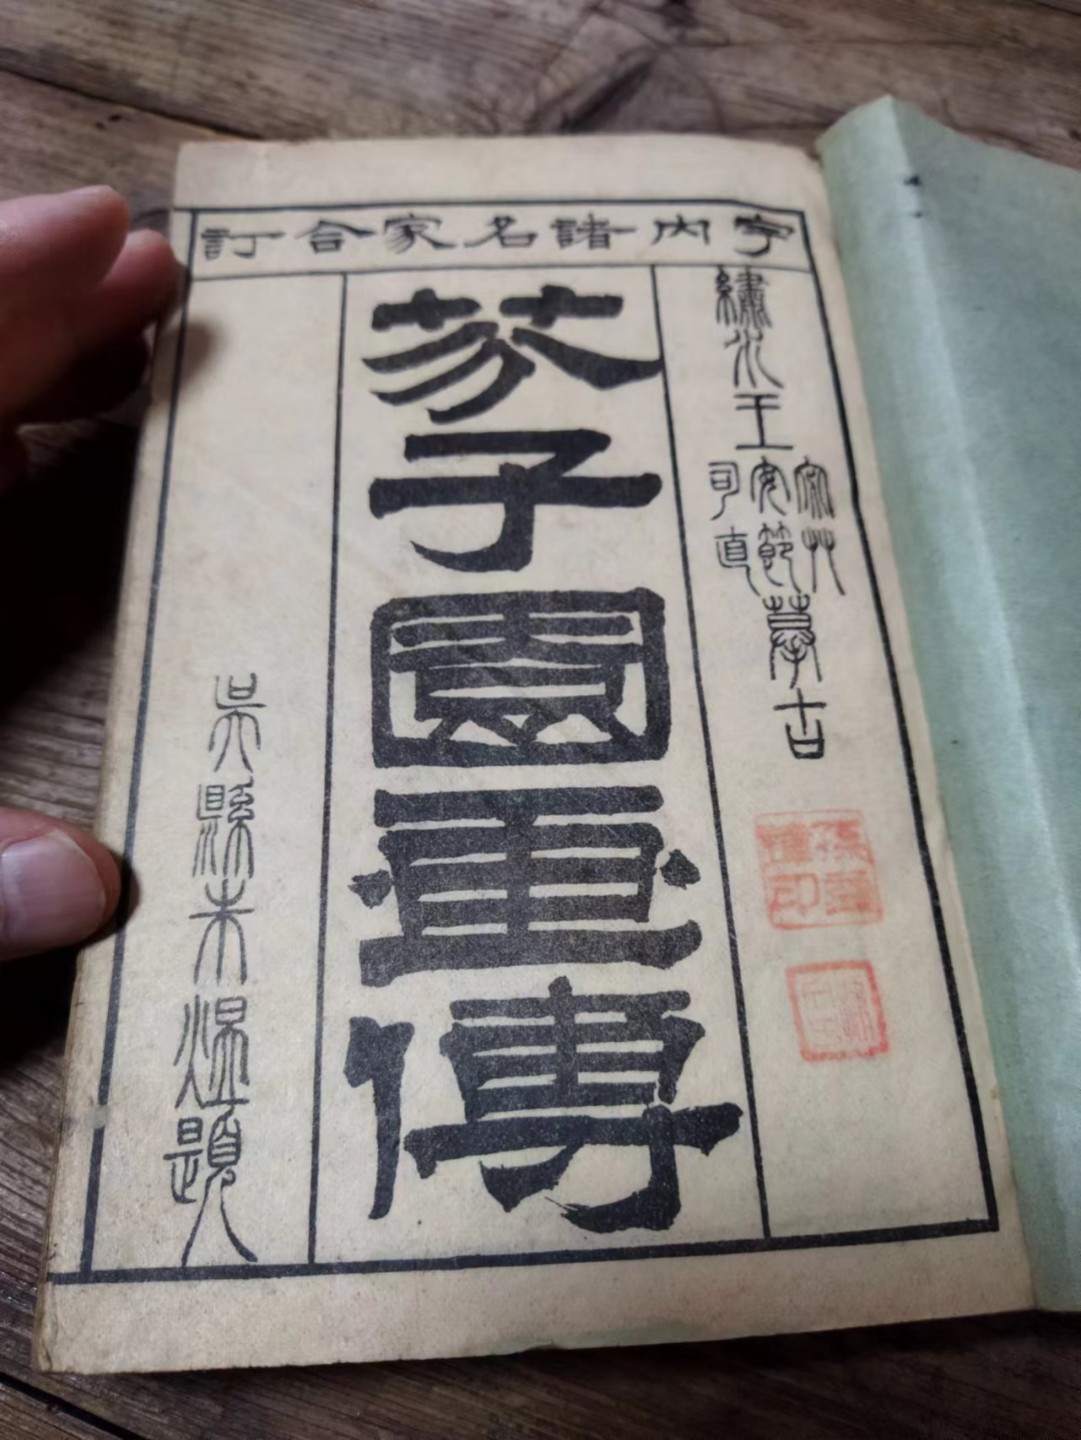 宇内諸名家合訂
繡水王宓艸安節司直摹古
芥子園畫傳
吳縣朱題